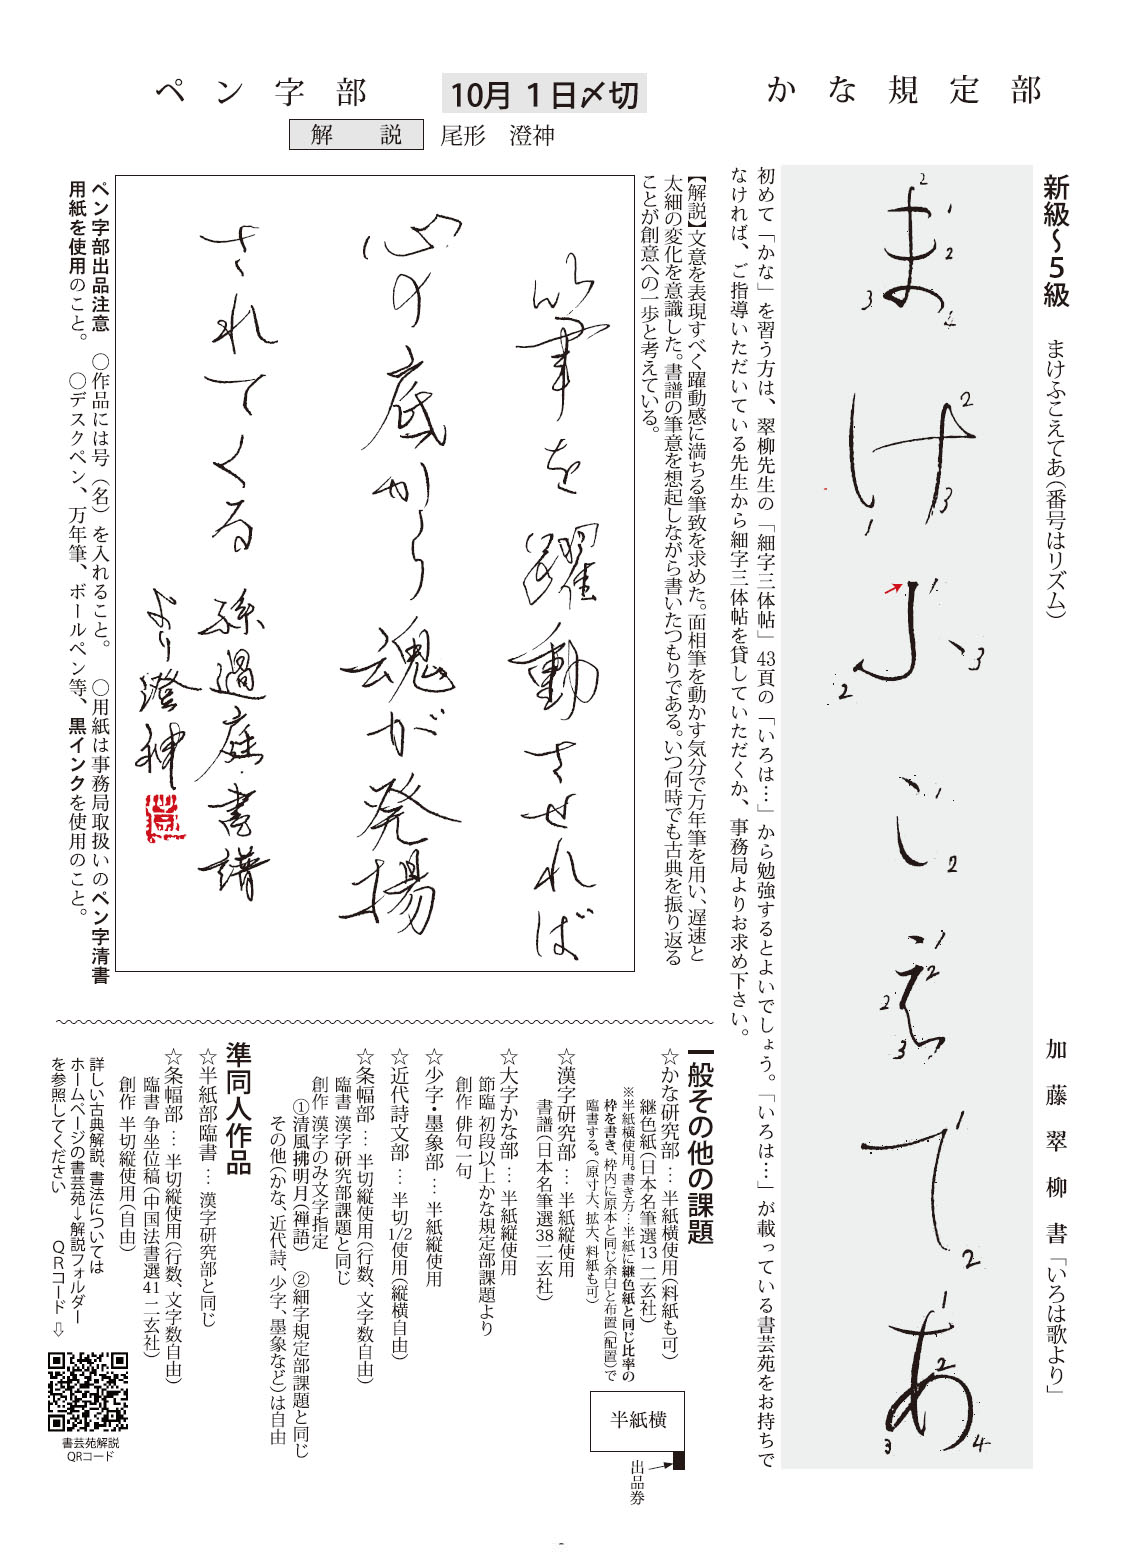 かな規定部
10月１日〆切
ペン字部
解　説
尾形　澄神
新級〜５級　まけふこえてあ（番号はリズム）
加藤翠柳書「いろは歌より」
まけふこえてあ
2 1 2 3 4
2 3 1
1 3 2
1 2
1 2 2 3
2
1 2 3 4
初めて「かな」を習う方は、翠柳先生の「細字三体帖」43頁の「いろは…」から勉強するとよいでしょう。「いろは…」が載っている書芸苑をお持ちで
なければ、ご指導いただいている先生から細字三体帖を貸していただくか、事務局よりお求め下さい。
【解説】文意を表現すべく躍動感に満ちる筆致を求めた。面相筆を動かす気分で万年筆を用い、遅速と
太細の変化を意識した。書譜の筆意を想起しながら書いたつもりである。いつ何時でも古典を振り返る
ことが創意への一歩と考えている。
筆を躍動させれば
心の底から魂が発揚
されてくる 孫過庭書譜
より 澄神
ペン字部出品注意　○作品には号（名）を入れること。　○用紙は事務局取扱いのペン字清書
用紙を使用のこと。　○デスクペン、万年筆、ボールペン等、黒インクを使用のこと。
一般その他の課題
☆かな研究部…半紙横使用（料紙も可）
継色紙（日本名筆選13 二玄社）
※半紙横使用。書き方…半紙に継色紙と同じ比率の
枠を書き、枠内に原本と同じ余白と布置（配置）で
臨書する。（原寸大、拡大、料紙も可）
半紙横
出品券
☆漢字研究部…半紙縦使用
書譜（日本名筆選38二玄社）
☆大字かな部…半紙縦使用
節臨 初段以上かな規定部課題より
創作 俳句一句
☆少字・墨象部…半紙縦使用
☆近代詩文部…半切1/2使用（縦横自由）
☆条幅部…半切縦使用（行数、文字数自由）
臨書 漢字研究部課題と同じ
創作 漢字のみ文字指定
①清風拂明月（禅語）　②細字規定部課題と同じ
その他（かな、近代詩、少字、墨象など）は自由
準同人作品
☆半紙部臨書…漢字研究部と同じ
☆条幅部…半切縦使用（行数、文字数自由）
臨書 争坐位稿（中国法書選41 二玄社）
創作 半切縦使用（自由）
詳しい古典解説、書法については
ホームページの書芸苑→解説フォルダー
を参照してください　QRコード⇨
書芸苑解説
QRコード